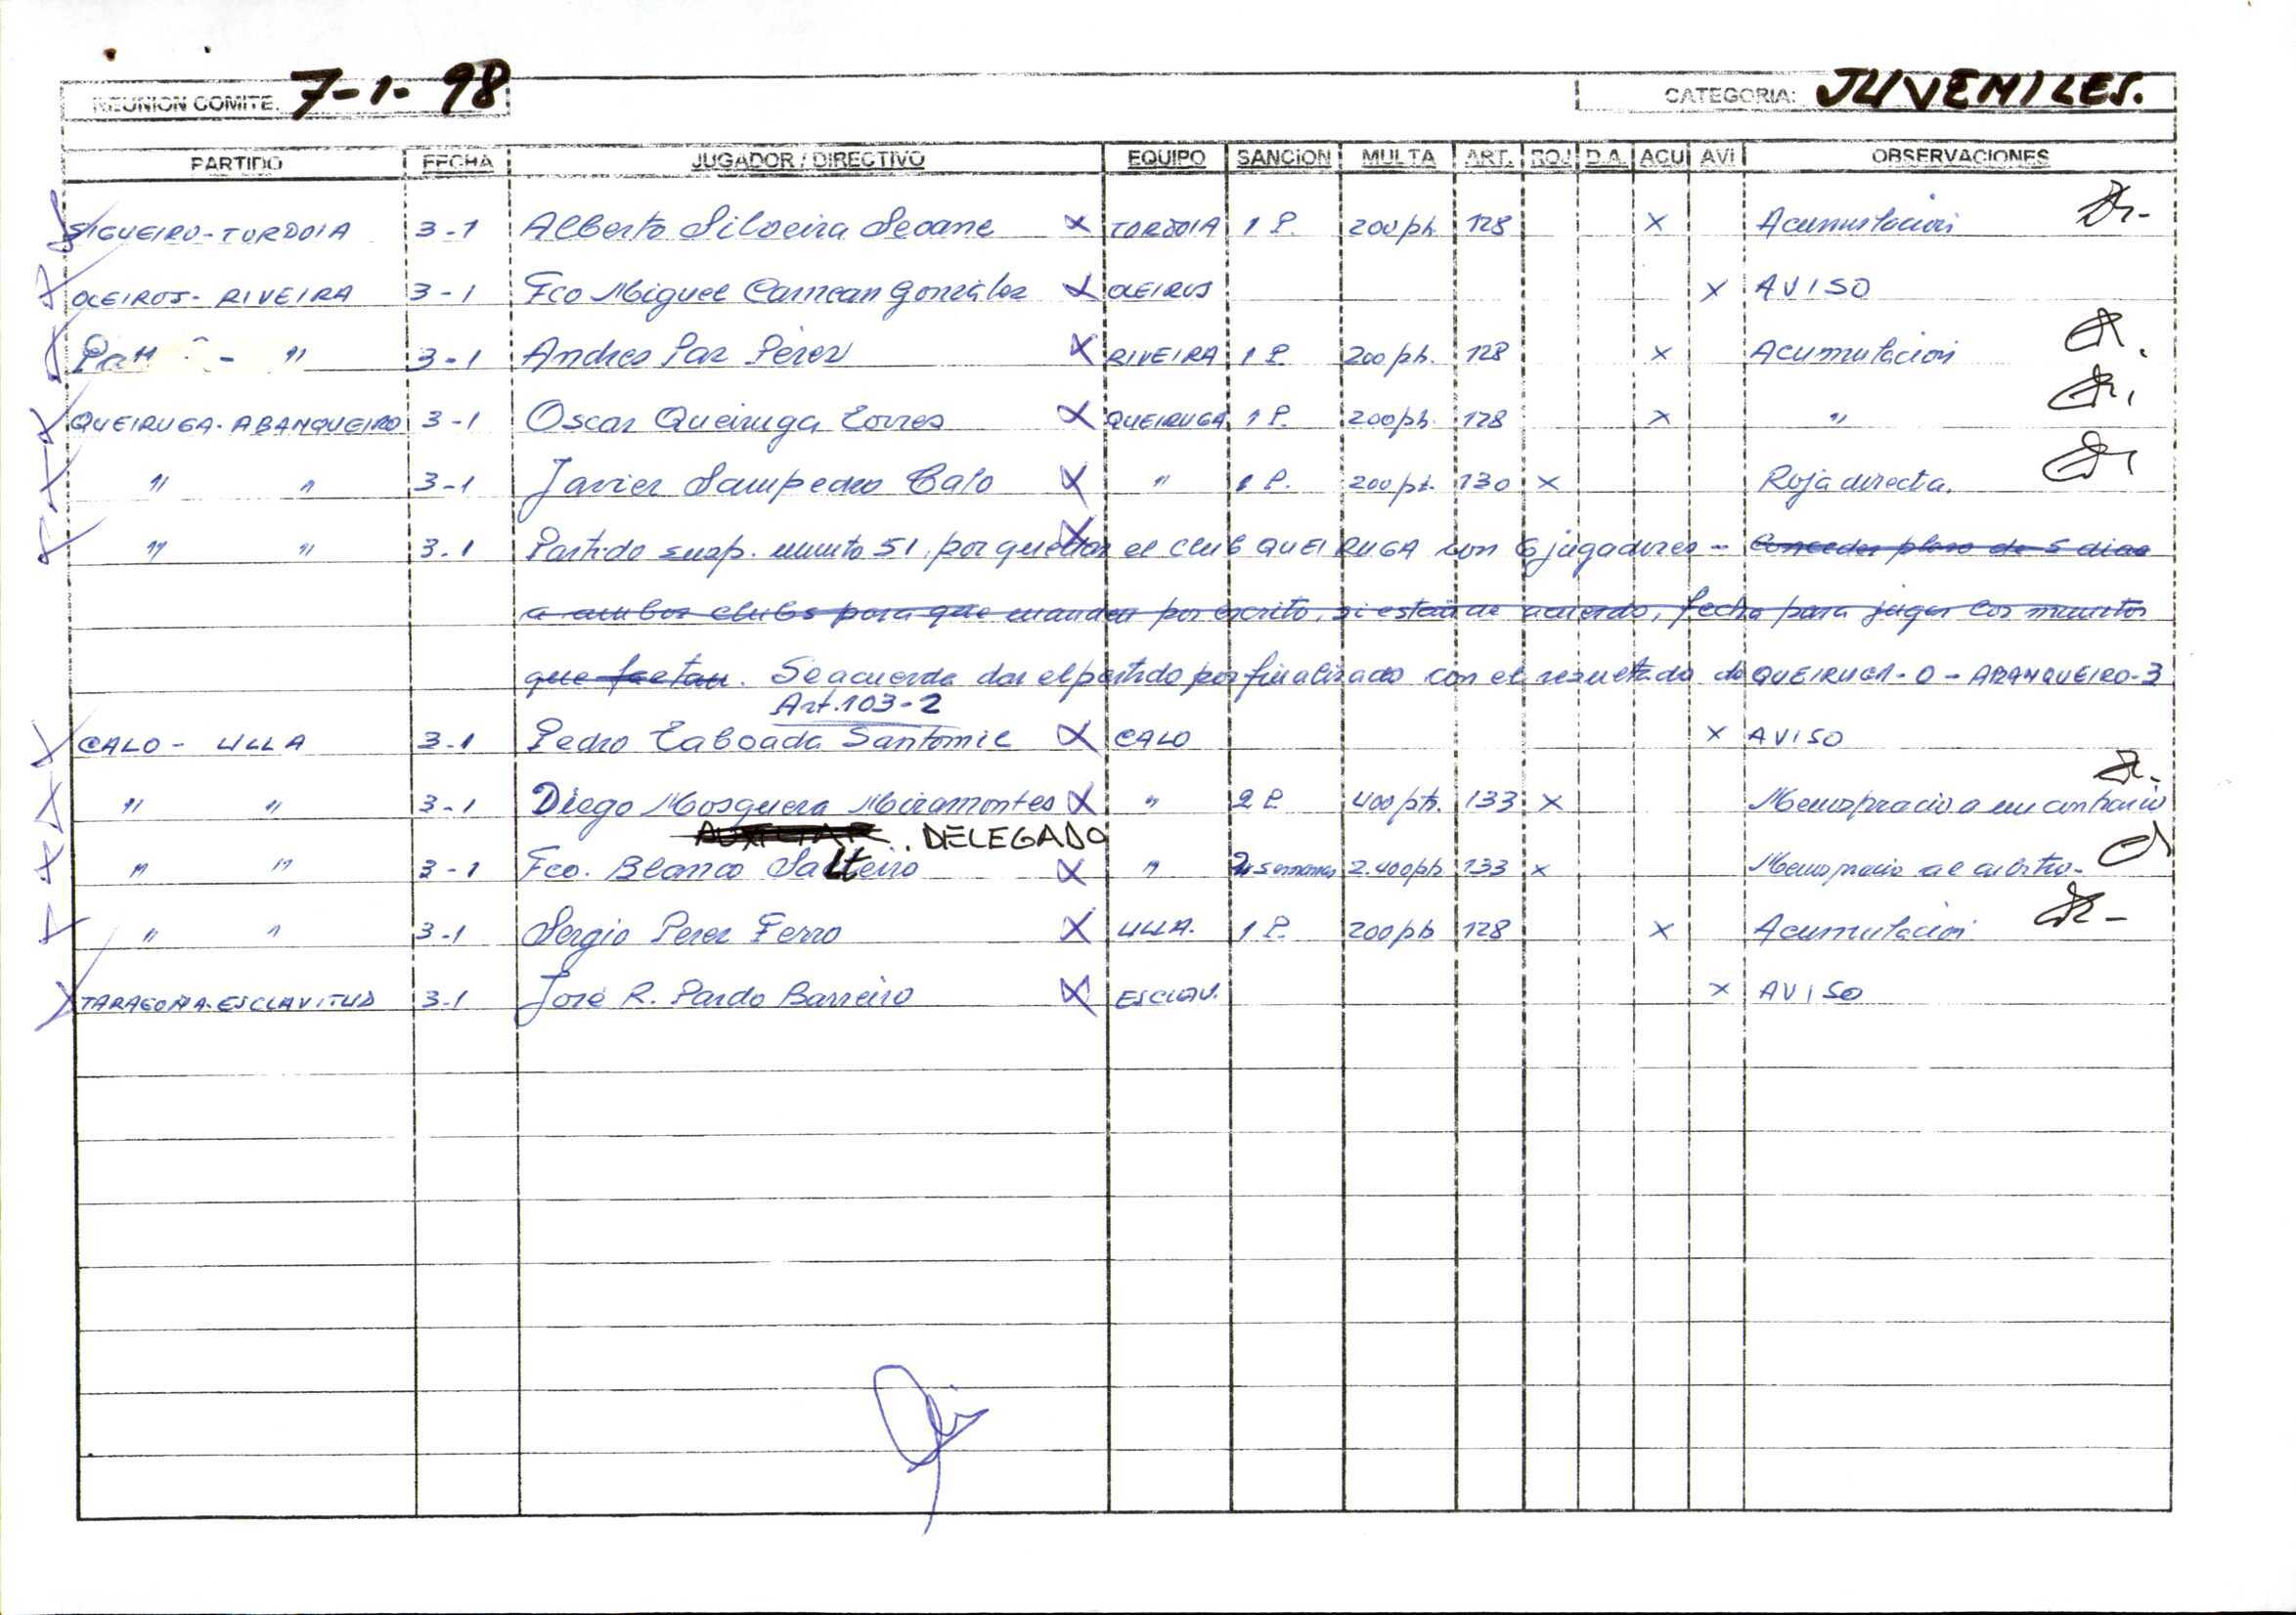 REUNION COMITE: 7-1-98 CATEGORIA: JUVENILES.
PARTIDO FECHA JUGADOR / DIRECTIVO EQUIPO SANCION MULTA ART. ROJ D.A. ACU AVI OBSERVACIONES
SIGUEIRO-TORDOIA 3-1 Alberto Silveira Seoane X TORDOIA 1 P. 200 pts. 128 X Acumulación
OLEIROS-RIVEIRA 3-1 Fco Miguel González X OLEIROS X AVISO
- " 3-1 Andres Paz Pérez X RIVEIRA 1 P. 200 pts. 128 X Acumulación
QUEIRUGA-ABANQUEIRO 3-1 Oscar Queiruga Torres X QUEIRUGA 1 P. 200 pts. 128 X "
" " 3-1 Javier Sampedro Calo X " 1 P. 200 pts. 130 X Roja directa.
" " 3-1 Partido susp. minuto 51, por quedar el club QUEIRUGA con 6 jugadores - Conceder plazo de 5 dias
a ambos clubs para que manden por escrito, si están de acuerdo, fecha para jugar los minutos
que faetan. Se acuerda dar el partido por finalizado con el resultado de QUEIRUGA-0-ABANQUEIRO-3
Art. 103-2
CALO - ULLA 3-1 Pedro Taboada Santomil X CALO X AVISO
" " 3-1 Diego Mosquera Miramontes X " 2 P. 400 pts. 133 X Menosprecio a un contrario
AUXILIAR . DELEGADO
" " 3-1 Fco. Blanco Salteiro X " semanas 2.400 pts 133 X Menosprecio al arbitro.
" " 3-1 Sergio Perez Ferro X ULLA. 1 P. 200 pts 128 X Acumulación
TARAGOÑA-ESCLAVITUD 3-1 José R. Pardo Barreiro X ESCLAV. X AVISO